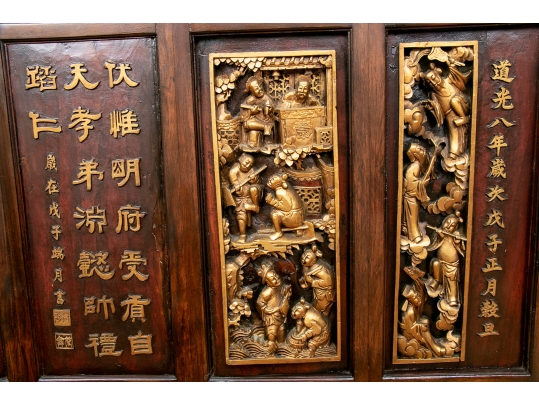 道光八年歲次戊子正月穀旦
伏惟明府受質自
天孝弟淵懿帥禮
蹈仁
歲在戊子端月書